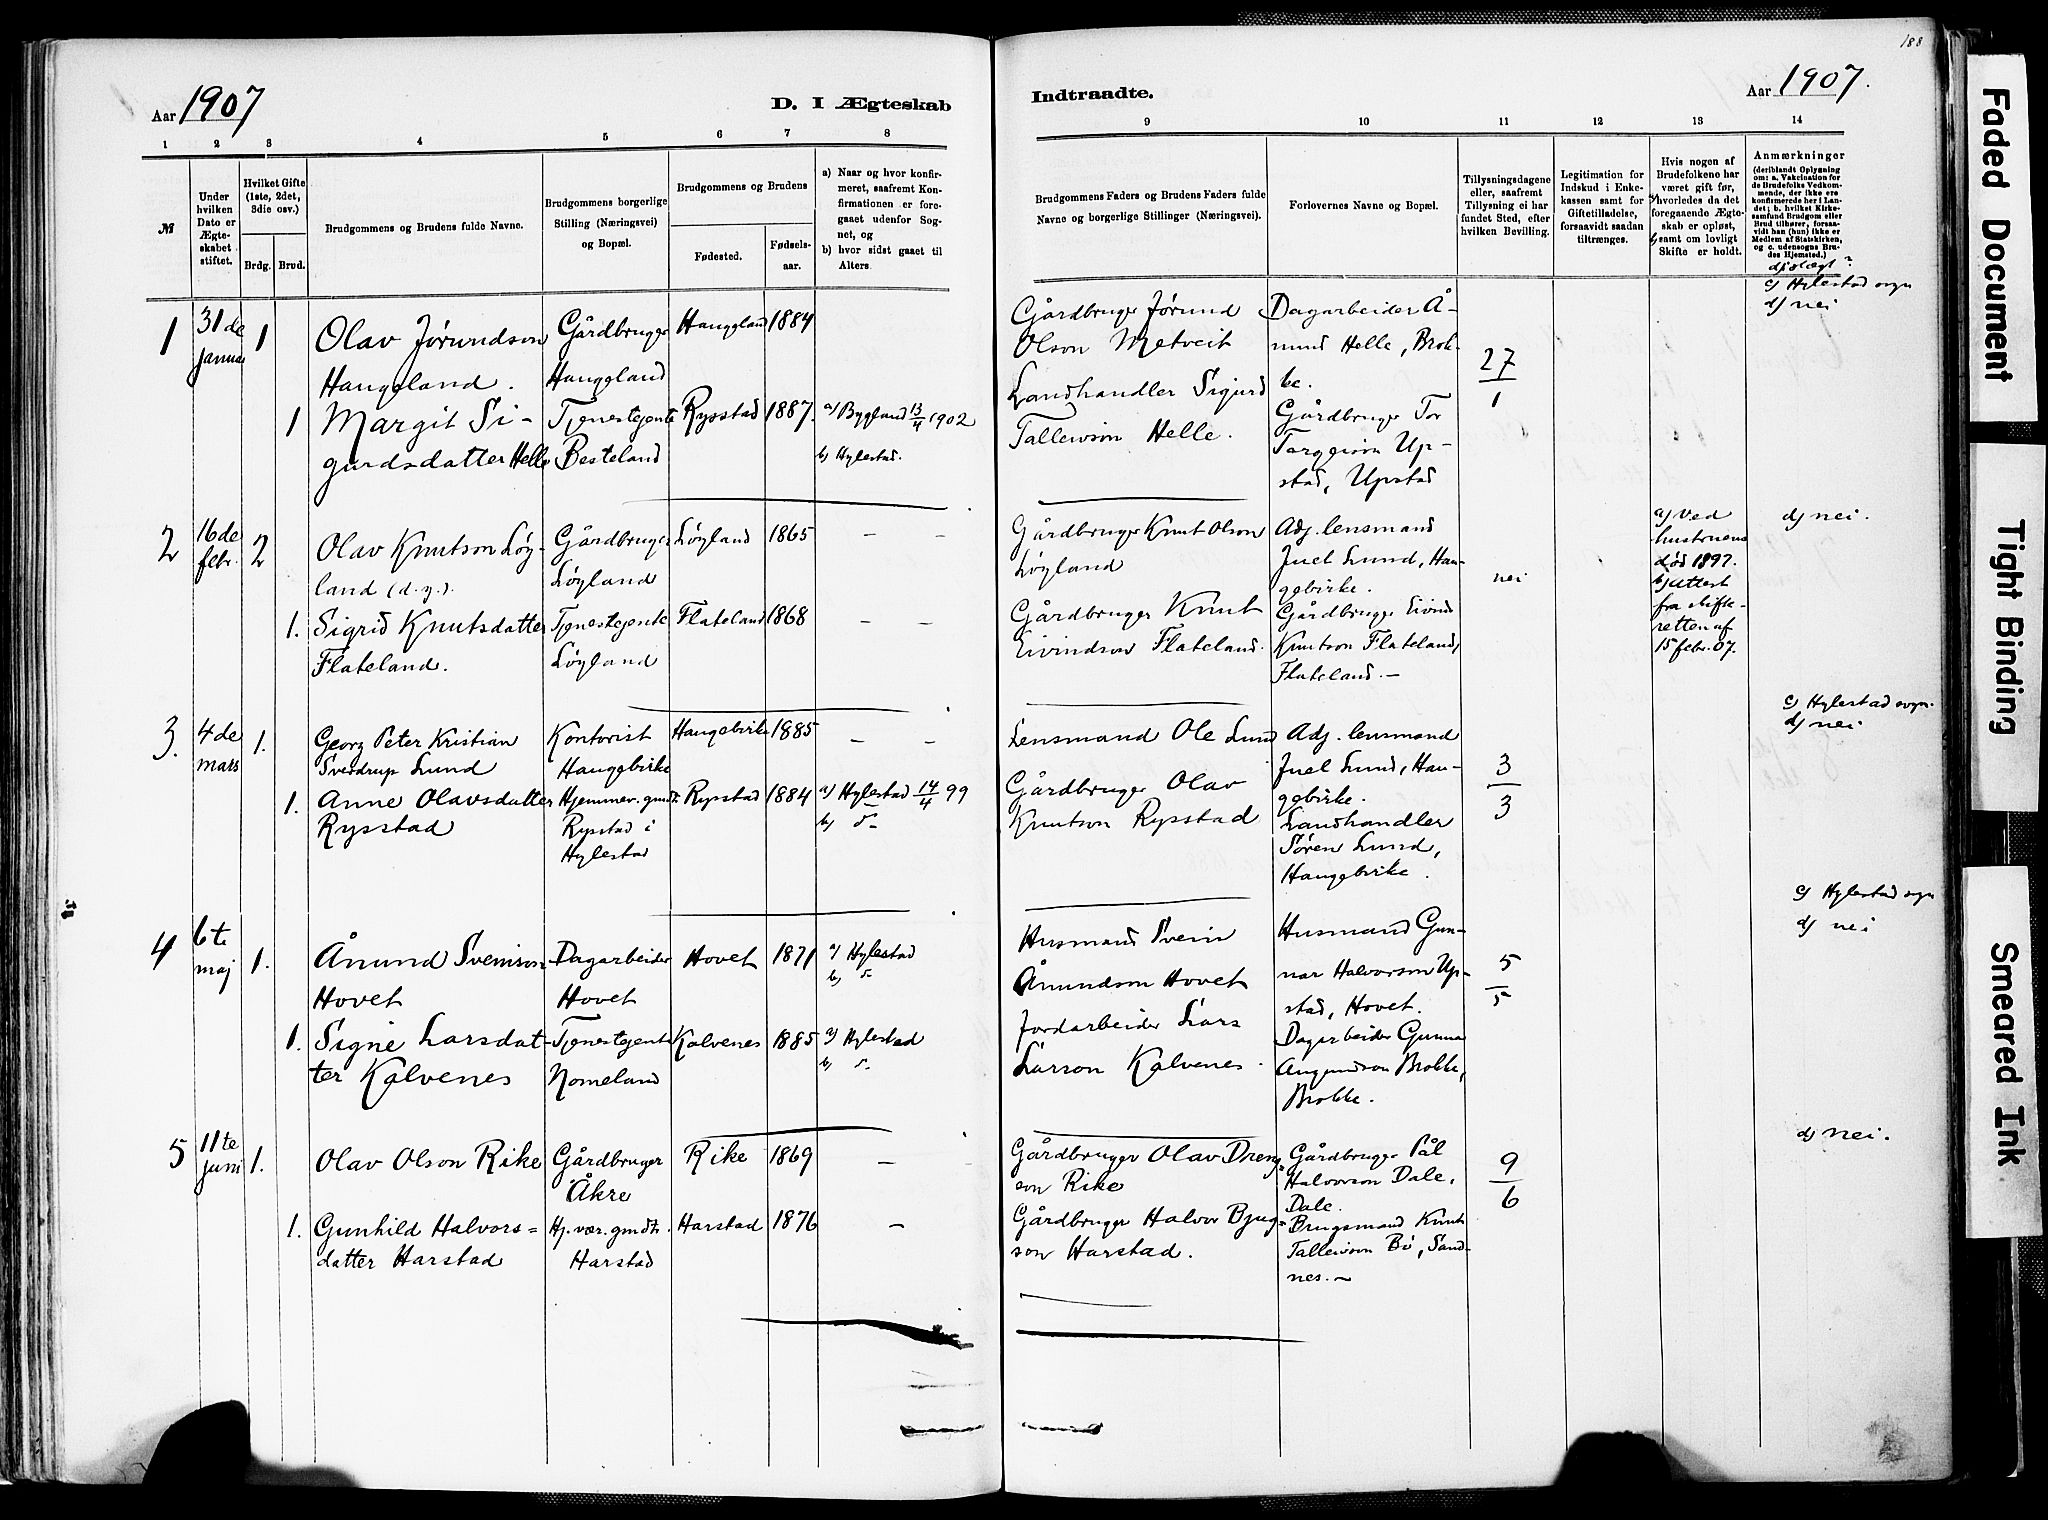 188
Aar 1907
D. I Ægteskab
Indtraadte.
Aar 1907.
1 2 3 4 5 6 7 8
9 10 11 12 13 14
№
Under hvilken Dato er Ægteskabet stiftet.
Hvilket Gifte (1ste, 2det, 3die osv.)
Brdg. Brud.
Brudgommens og Brudens fulde Navne.
Brudgommens borgerlige Stilling (Næringsvei) og Bopæl.
Brudgommens og Brudens
Fødested.
Fødsels-aar.
a) Naar og hvor konfirmeret, saafremt Konfirmationen er foregaaet udenfor Sognet, og
b) hvor sidst gaaet til Alters.
Brudgommens Faders og Brudens Faders fulde Navne og borgerlige Stillinger (Næringsvei).
Forlovernes Navne og Bopæl.
Tillysningsdagene eller, saafremt Tillysning ei har fundet Sted, efter hvilken Bevilling.
Legitimation for Indskud i Enkekassen samt for Giftetilladelse, forsaavidt saadan tiltrænges.
Hvis nogen af Brudefolkene har været gift før, a) hvorledes da det foregaaende Ægteskab er opløst, b) samt om lovligt Skifte er holdt.
Anmærkninger
(deriblandt Oplysning om: a. Vakcination for de Brudefolks Vedkommende, der ikke ere konfirmerede her i Landet; b. hvilket Kirkesamfund Brudgom eller Brud tilhører, forsaavidt han (hun) ikke er Medlem af Statskirken, og c. udensogns Brudes Hjemsted.)
d) slegt?
1
31de januar
1
Olav Jørundson
Haugeland.
Gårdbruger
Haugeland
Haugeland
1884
Gårdbruger Jørund
Olson Metveit
Dagarbeider Å-
mund Helle, Brok-
ke.
27
1
c) Hylestad sogn
d) nei
1
Margit Si-
gurdsdatter Helle
Tjenestejente
Besteland
Rysstad
1887.
a) Bygland 13/4 1902
b) Hylestad.
Landhandler Sigurd
Tallevson Helle.
Gårdbruger Tor
Torgeirson Up-
stad, Upstad
2
16de febr.
2
Olav Knutson Løy-
land (d.y.).
Gårdbruger
Løyland
Løyland
1865
— —
Gårdbruger Knut Olson
Løyland
Adj. lensmand
Juel Lund, Hau-
gebirke.
nei
a) Ved
hustruens
død 1897.
b) Attest
fra skifte-
retten af
15 febr. 07.
d) nei.
1.
Sigrid Knutsdatter
Flateland.
Tjenestejente
Løyland
Flateland
1868
— —
Gårdbruger Knut
Eivindson Flateland.
Gårdbruger Eivind
Knutson Flateland,
Flateland. —
3.
4de mars
1.
Georg Peter Kristian
Sverdrup Lund
Kontorist
Haugebirke
Haugebirke
1885
— —
Lensmand Ole Lund
Adj. lensmand
Juel Lund, Hau-
gebirke.
3
3
c) Hylestad sogn.
d) nei
1.
Anne Olavsdatter
Rysstad
Hjemmev. gmdt.
Rysstad i
Hylestad
Rysstad
1884
a) Hylestad 14/4 99
b) d-
Gårdbruger Olav
Knutson Rysstad
Landhandler
Søren Lund,
Haugebirke.
4
6te maj
1.
Ånund Sveinson
Hovet
Dagarbeider
Hovet
Hovet
1871
a) Hylestad
b) d-
Husmand Svein
Ånundson Hovet
Husmand Gun-
nar Halvorson Up-
stad, Hovet.
5
5
c) Hylestad sogn
d) nei
1.
Signe Larsdat-
ter Kalvenes
Tjenestejente
Nomeland
Kalvenes
1885
a) Hylestad
b) d-
Jordarbeider Lars
Larson Kalvenes.
Dagarbeider Gunnar
Augundson Brokke,
Brokke.
5
11te juni
1.
Olav Olson Rike
Gårdbruger
Åkre
Rike
1869
—
Gårdbruger Olav Dreng-
son Rike
Gårdbruger Pål
Halvorson Dale,
Dale.
9
6
d) nei.
1.
Gunhild Halvors-
datter Harstad
Hj. vær. gmdt.
Harstad
Harstad
1876
—
Gårdbruger Halvor Bjug-
son Harstad.
Brugsmand Knut
Talleivson Bö, Sand-
nes. —
Faded Document
Tight Binding
Smeared Ink